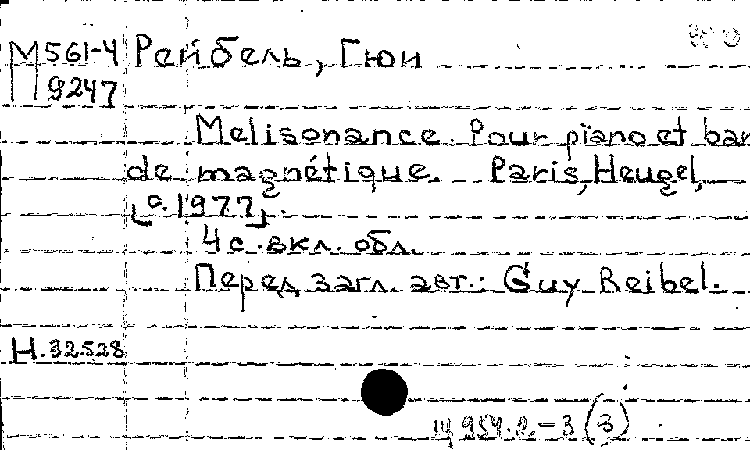 М 561-4 Рейбель, Гюи
П 9247
Melisonance. Pour piano et ban
de magnétique. Paris, Heugel,
[c. 1977].
4 с. вкл. обл.
Перед загл. авт.: Guy Reibel.
Н. 32528
954.2.-3 (3)